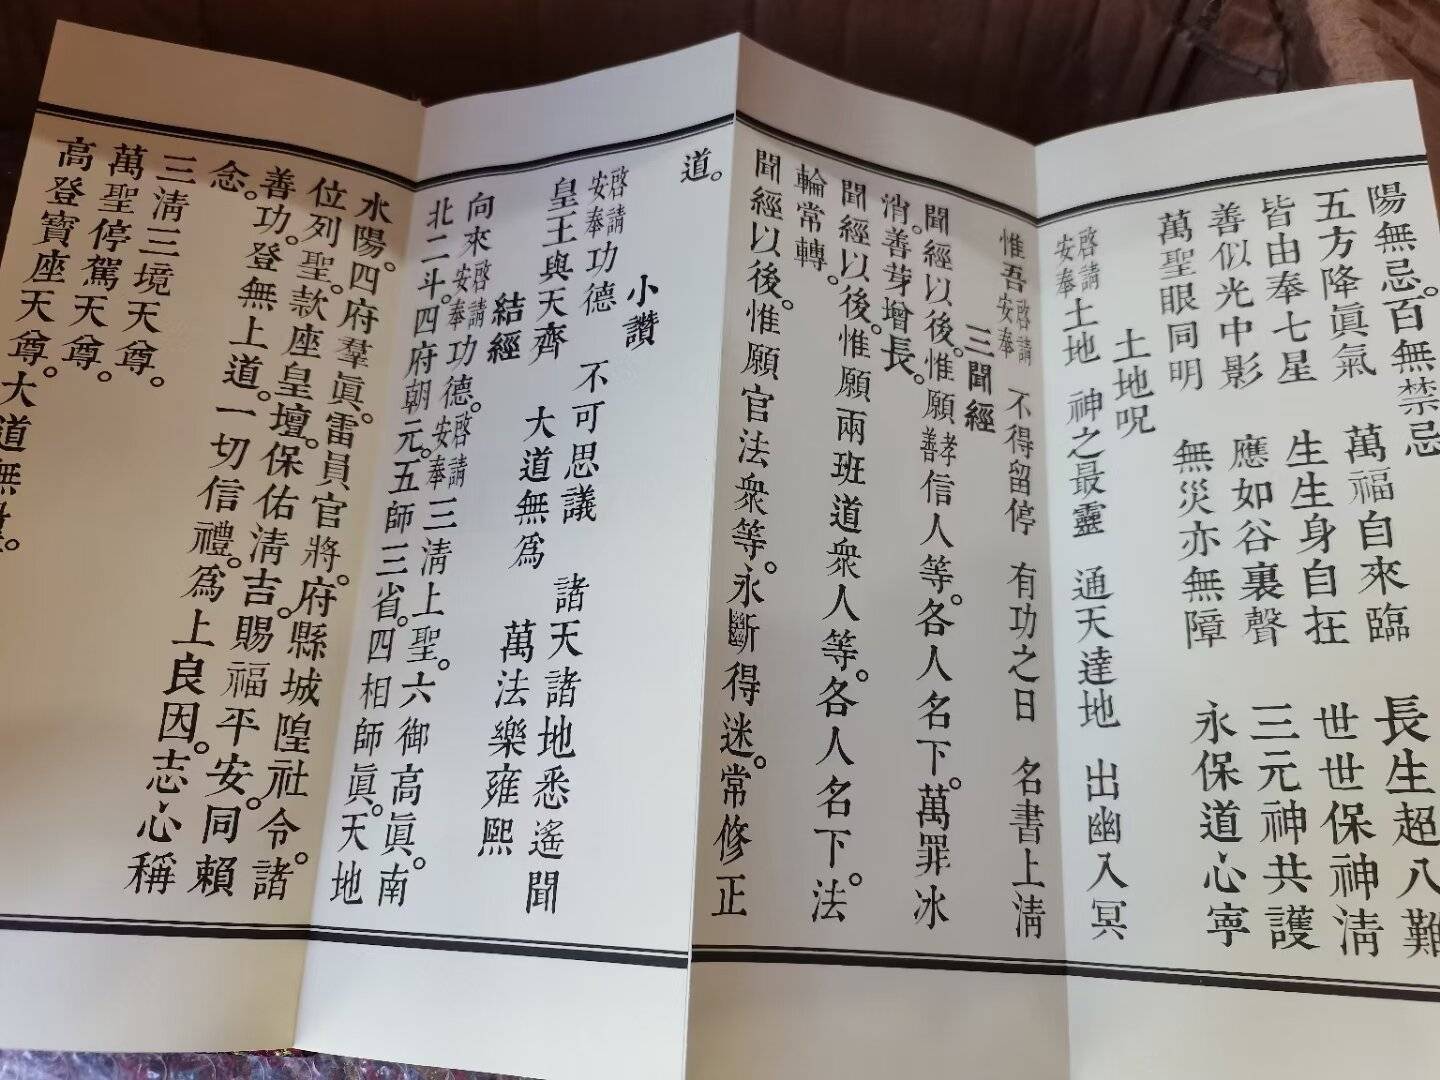 陽無忌。百無禁忌　長生超八難
五方降眞氣　萬福自來臨　世世保神清
皆由奉七星　生生身自在　三元神共護
善似光中影　應如谷裏聲　永保道心寧
萬聖眼同明　無災亦無障
土地呪
啓請安奉土地　神之最靈　通天達地　出幽入冥
惟吾啓請安奉　不得留停　有功之日　名書上淸
三聞經
聞經以後。惟願孝善信人等。各人名下。萬罪冰
消。善芽增長。
聞經以後。惟願兩班道衆人等。各人名下。法
輪常轉。
聞經以後。惟願官法衆等。永斷得迷。常修正
道。
小讚
啓請安奉功德　不可思議　諸天諸地悉遙聞
皇王與天齊　大道無爲　萬法樂雍熙
結經
向來啓請安奉功德。啓請安奉三淸上聖。六御高眞。南
北二斗。四府朝元。五師三省。四相師眞。天地
水陽。四府羣眞。雷員官將。府縣城隍社令。諸
位列聖。款座皇壇。保佑淸吉。賜福平安。同賴
善功。登無上道。一切信禮。爲上良因。志心稱
念。
三淸三境天尊。
萬聖停駕天尊。
高登寶座天尊。大道無